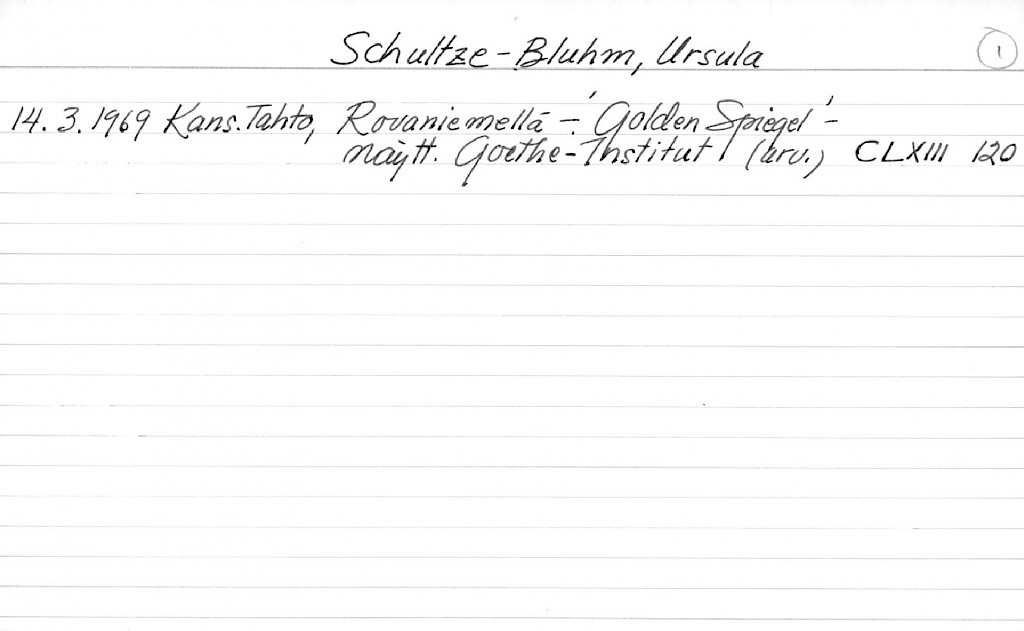 Schultze-Bluhm, Ursula 1
14.3.1969 Kans.Tahto, Rovaniemellä - 'Golden Spiegel' -
näytt. Goethe-Institut (arv.) CLXIII 120